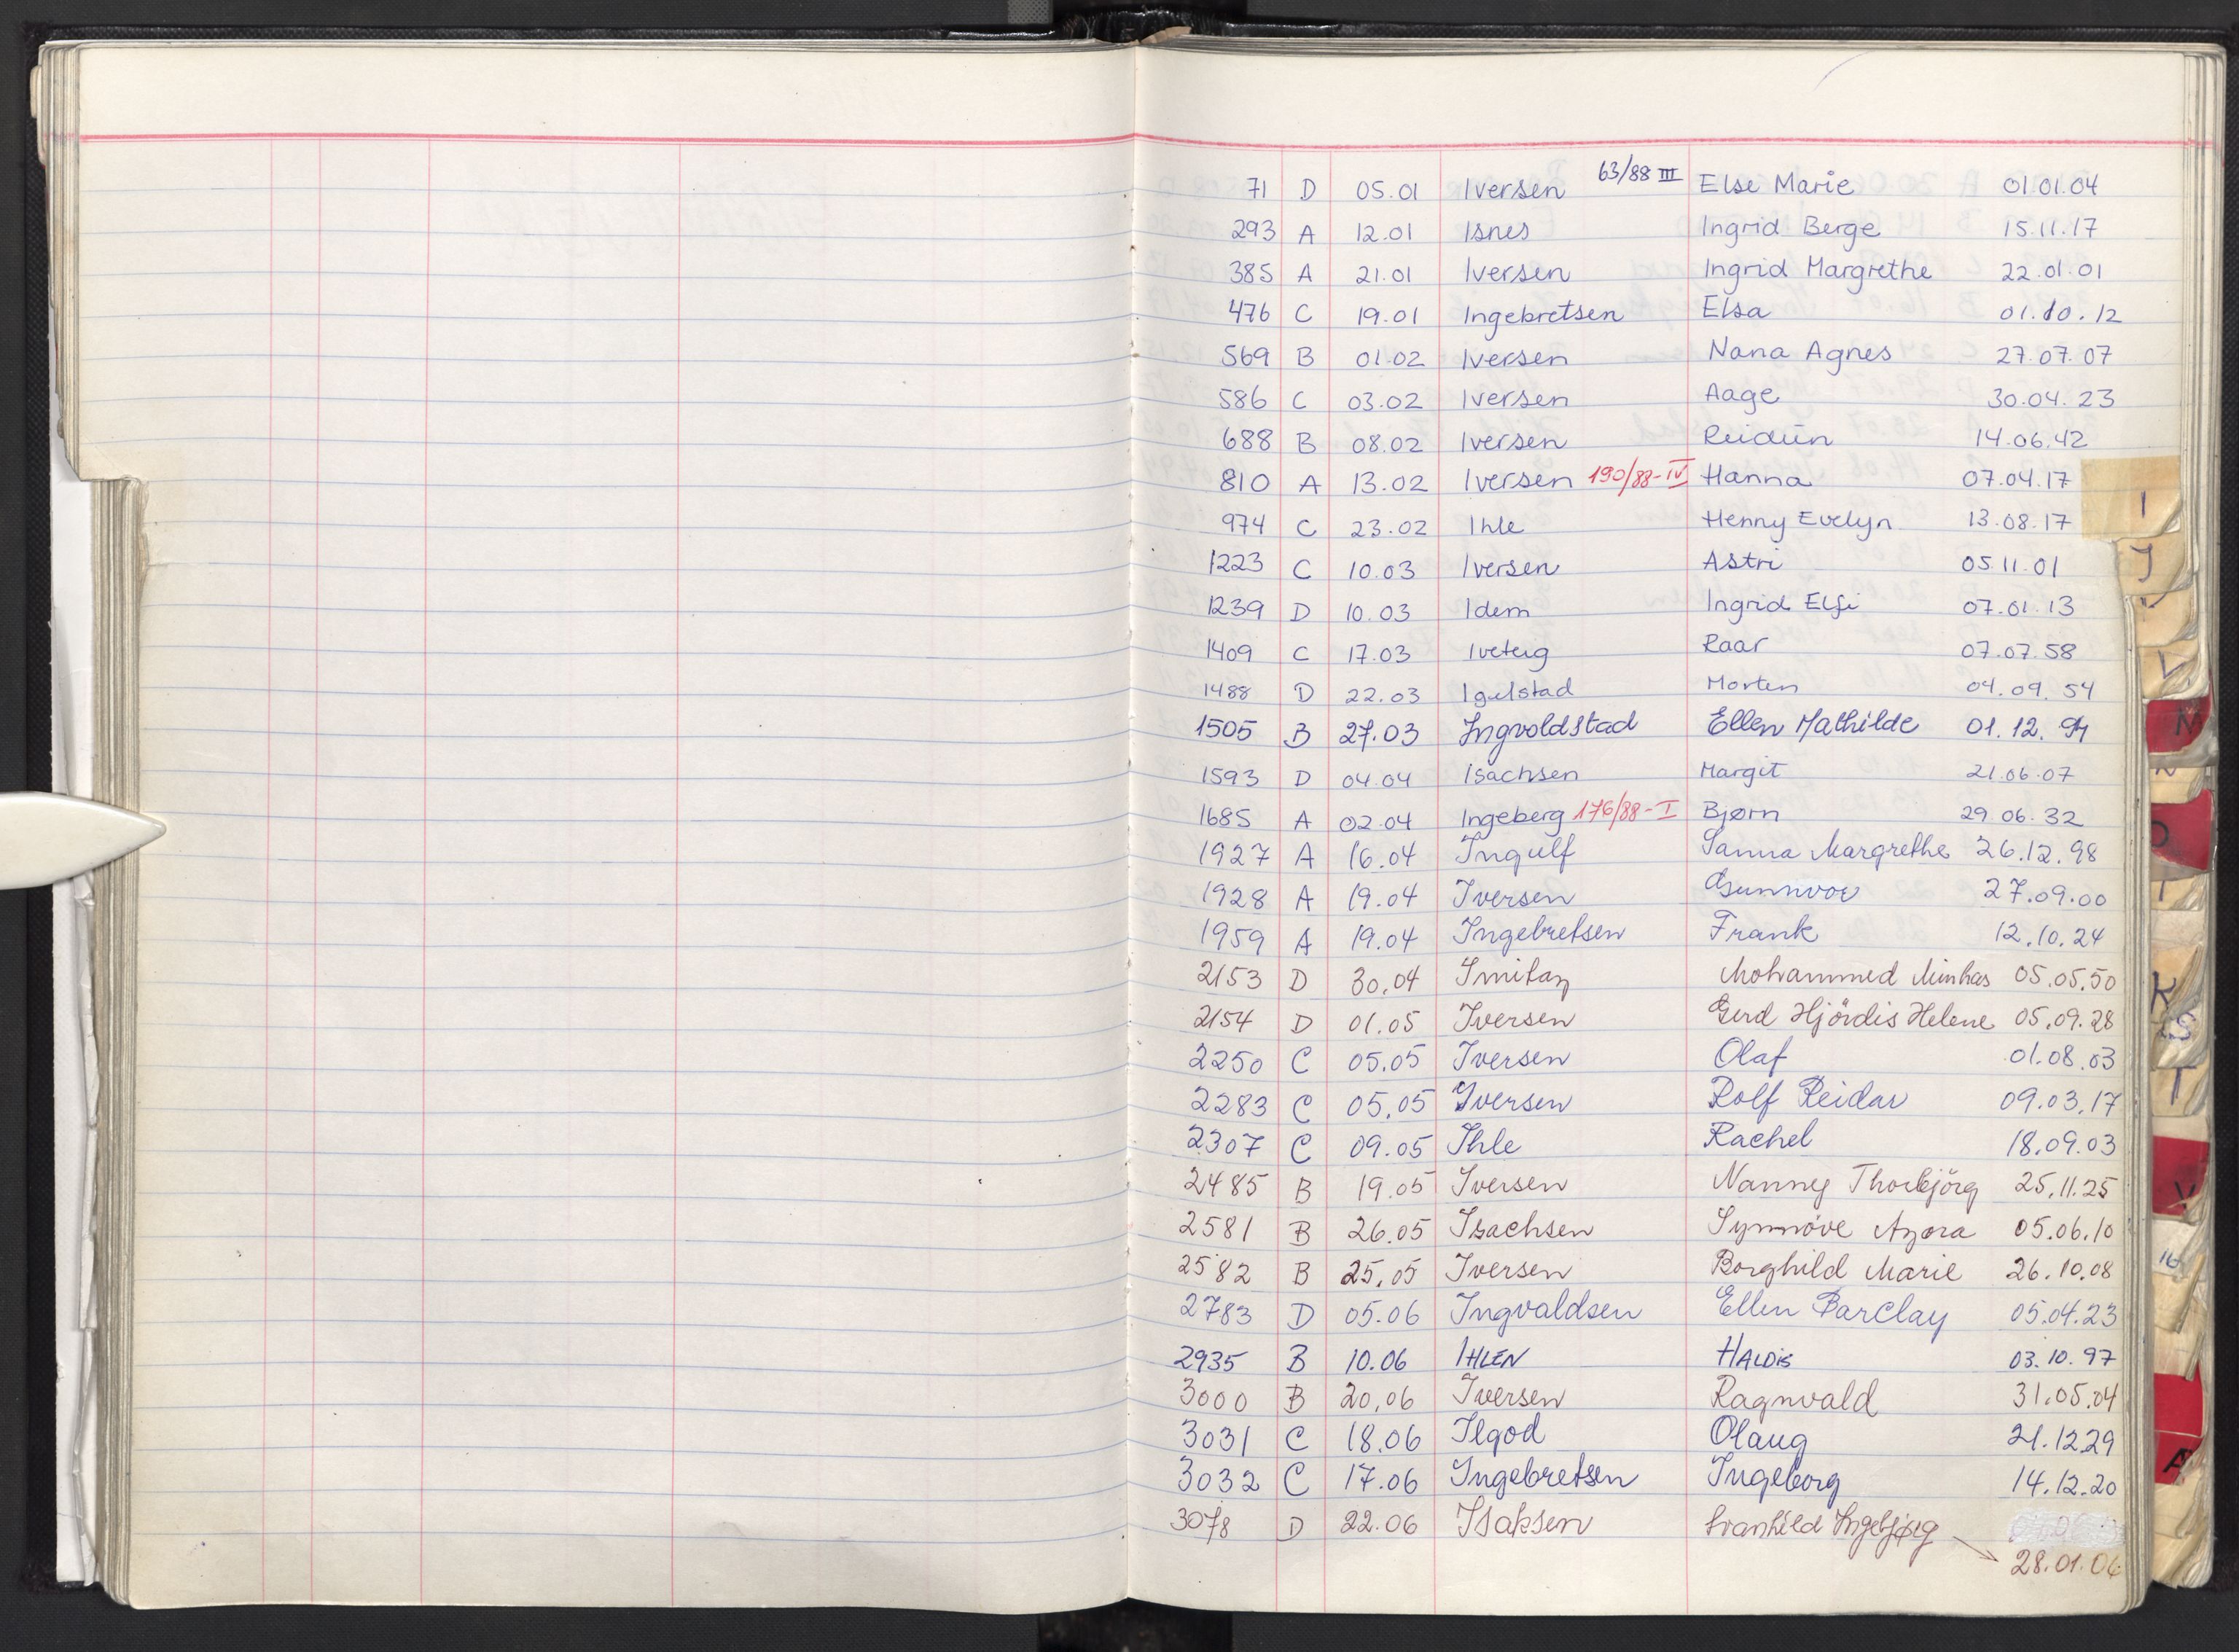 71 D 05.01 Iversen 63/88 III Else Marie 01.01.04
293 A 12.01 Isnes Ingrid Berge 15.11.17
385 A 21.01 Iversen Ingrid Margrethe 22.01.01
476 C 19.01 Ingebretsen Elsa 01.10.12
569 B 01.02 Iversen Nana Agnes 27.07.07
586 C 03.02 Iversen Aage 30.04.23
688 B 08.02 Iversen Reidūn 14.06.42
810 A 13.02 Iversen 190/88-IV Hanna 07.04.17
974 C 23.02 Ihle Henny Evelyn 13.08.17
1223 C 10.03 Iversen Astri 05.11.01
1239 D 10.03 Idem Ingrid Elfi 07.01.13
1409 C 17.03 Iveteig Roar 07.07.58
1488 D 22.03 Igelstad Morten 04.09.54
1505 B 27.03 Ingvoldstad Ellen Mathilde 01.12.94
1593 D 04.04 Isachsen Margit 21.06.07
1685 A 02.04 Ingeberg 176/88-I Bjørn 29.06.32
1927 A 16.04 Ingulf Sanna Margrethe 26.12.98
1928 A 19.04 Iversen Gunnvor 27.09.00
1959 A 19.04 Ingebretsen Frank 12.10.24
2153 D 30.04 Mohammed Minhas 05.05.50
2154 D 01.05 Iversen Gerd Hjördis Helene 05.09.28
2250 C 05.05 Iversen Olaf 01.08.03
2283 C 05.05 Iversen Rolf Reidar 09.03.17
2307 C 09.05 Ihle Rachel 18.09.03
2485 B 19.05 Iversen Nanny Thorbjörg 25.11.25
2581 B 26.05 Isachsen Synnöve Azora 05.06.10
2582 B 25.05 Iversen Borghild Marie 26.10.08
2783 D 05.06 Ingvaldsen Ellen Barclay 05.04.23
2935 B 10.06 IHLEN HALDIS 03.10.97
3000 B 20.06 Iversen Ragnvald 31.05.04
3031 C 18.06 Ilgod Olaug 21.12.29
3032 C 17.06 Ingebretsen Ingeborg 14.12.20
3078 D 22.06 Isaksen Svanhild Ingebjørg
28.01.06
I
J
L
N
O
K
S
T
V
16
A